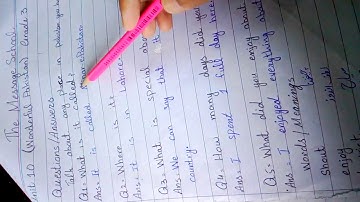 The Message School
Unit 10 (Wonderful Pakistan) Grade 3
Questions/Answers
Talk about any place in Pakistan you
Q1= What is it called
Ans= It is called
Q2= Where is it
Ans= It is in Lahore
Q3= What is special about it
Ans= We can say that
country.
Q4= How many days did you
Ans= I spend 1 full day here
Q5= What did you enjoy about
Ans= I enjoyed everything about
Words/Meanings
Shout
enjoy